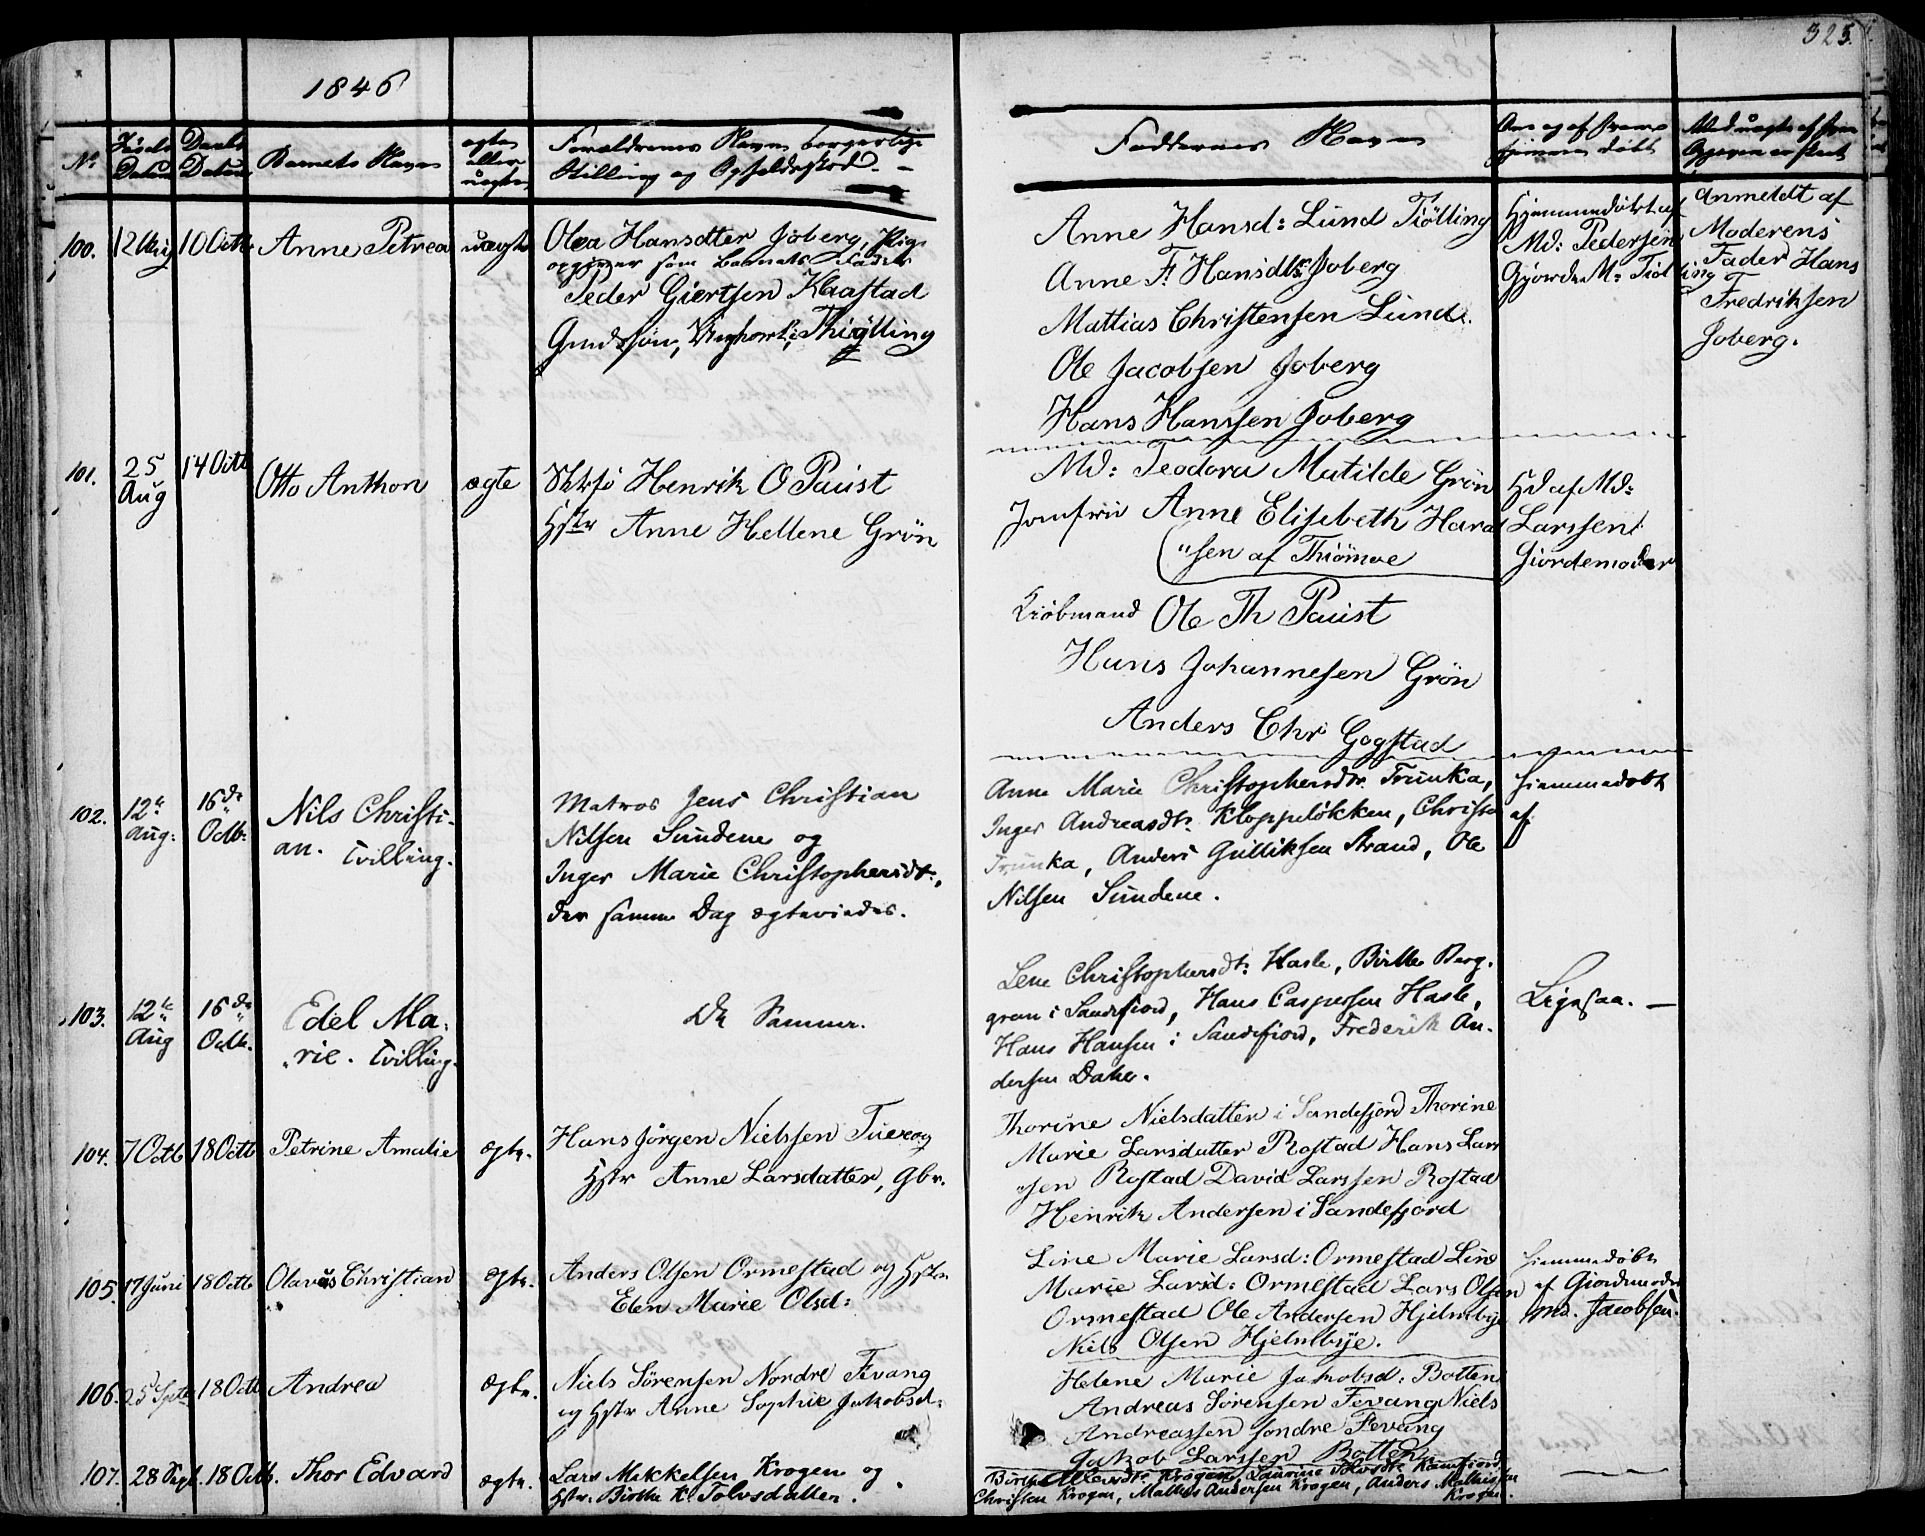 1846
325.
No
Daabs
Datum
Barnets Navn
ægte
eller
uægte
Forældrenes Navn borgerlige
Stilling og Opholdssted.
Faddernes Navn
100. 12 Aug 10 Octb Anne Petrea uægte
Olea Hansdtter Joberg, Pige
opgiver som Barnets Fader
Peder Giertsen Klaastad
Thiølling
Anne Hansd: Lund Tiølling
Anne F. Hansdtr Joberg
Mattias Christensen Lund.
Ole Jacobsen Joberg
Hans Hanssen Joberg
Hjemmedøbt af
Md: Pedersen
Gjorde M: Tiølling
Anmeldt af
Moderens
Fader Hans
Fredriksen
Joberg.
101. 25 Aug 14 Octb Otto Anthon ægte
Henrik O Paust
Hstr Anne Hellene Grøn
Md: Teodora Matilde Grøn
Jomfru Anne Elisebeth Harald
"sen af Thiømøe
Kiøbmand Ole Th Paust
Hans Johannesen Grøn
Anders Chr Gogstad
Hd af Md:
Larssen
Giordemoder
102. 12te Aug: 16de Octb: Nils Christi-
an. Tvilling.
Matros Jens Christian
Nilsen Sundene og
Inger Marie Christophersdt:,
der samme Dag ægteviedes.
Anne Marie Christophersdtr. Trunka,
Inger Andreasdt: Kloppeløkken, Christen
Trunka, Anders Gulliksen Strand, Ole
Nilsen Sundene.
Hiemmedøbt
af
103. 12te Aug 16de Octb. Edel Ma-
rie. Tvilling.
De Samme.
Lene Christophersdt: Hasle, Birthe Berg-
gren i Sandefiord, Hans Caspersen Hasle,
Hans Hansen i Sandefiord, Frederik An-
dersen Dahle.
Ligesaa. —
104. 7 Octb 18 Octb Petrine Amalie ægte.
Hans Jørgen Nielssen Tueog
Hstr Anne Larsdatter, Gbr.
Thorine Nielsdatter i Sandefjord Thorine
Marie Larsdatter Rostad Hans Lars
"sen Rostad David Larssen Rostad
Henrik Andersen i Sandefjord
105. 17 Juni 18 Octb Olavus Christian ægte.
Anders Olsen Ormestad og Hstr.
Elen Marie Olsd:
Line Marie Larsd: Ormestad Line
Marie Larsd: Ormestad Lars Olsen
Ormestad Ole Andersen Hjelmbye
Niels Olsen Hjelmbye.
Hiemmedøbt
af Giordemoder
Md. Jacobsen.
106. 25 Sept 18 Octb Andrea ægte.
Niels Sörensen Nordre Fevang
og Hstr Anne Sophie Jakobsd.
Helene Marie Jakobsd: Botten
Andreas Sörensen Fevang Niels
Andreassen søndre Fevang
Jakob Larssen Botten
107. 28 Sept. 18 Octb. Thor Edvard ægte.
Lars Mikkelsen Krogen og
Hstr. Birthe K. Tolvsdatter.
Krogen, Laurine Tolvsdt: Kamfiord,
Christen Krogen, Mathis Andersen Krogen, Anders Mathisen
Krogen.